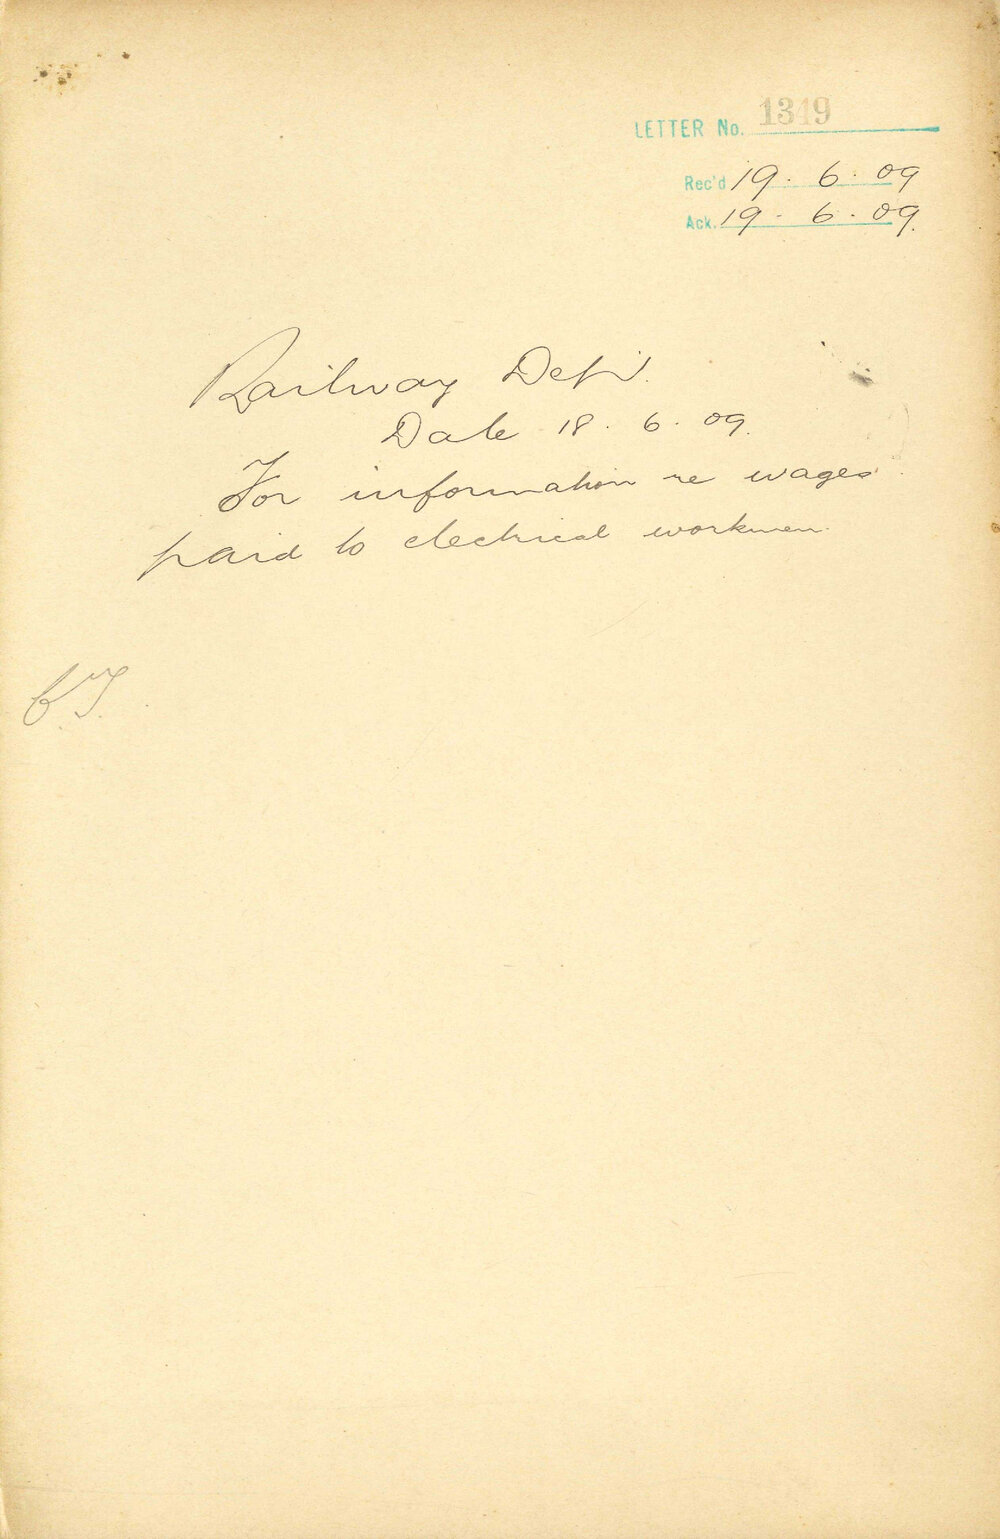 LETTER No. 1349
Rec'd 19. 6. 09
Ack. 19. 6. 09.
Railway Dept.
Date 18. 6. 09.
For information re wages
paid to electrical workmen.